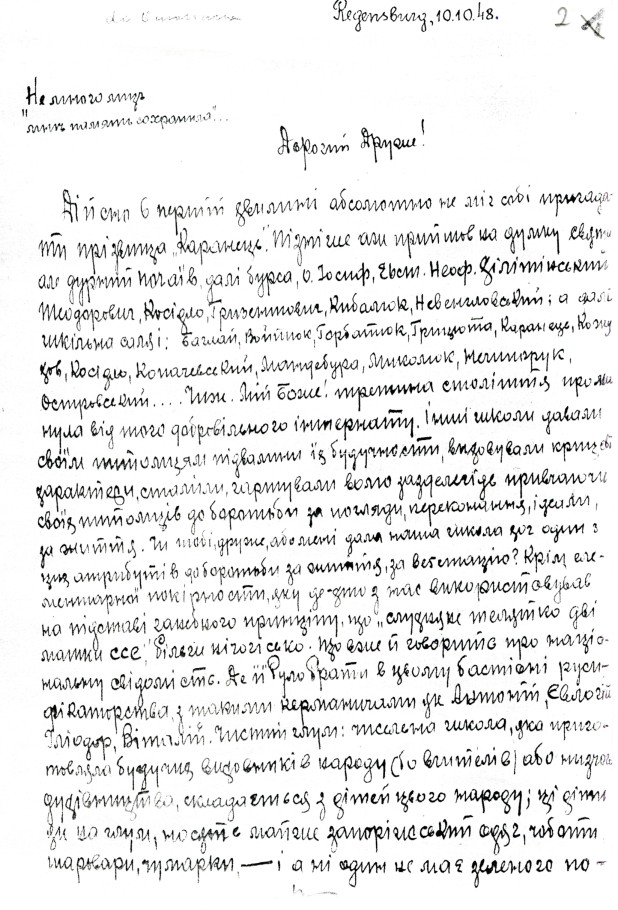 Regensburg, 10.10.48.
2
Немного лиць
"мнѣ память сохранила"...
Дорогий Друже!
Дійсно в першій хвилині абсолютно не міг собі пригада-
ти прізвища „Каранець". Пізніше аж прийшов на думку
але дурний Почаїв, далі бурса, о. Йосиф, Неоф. Цілітінський
Теодорович, Косідло, Гризентович, Кибалюк, Невенгловський; а далі
шкільна салля: Баглай, Войтюк, Горбатюк, Грицюта, Каранець,
Косідло, Копачевський, Мандебура, Миколюк, Нечипорук,
Островський.... Чиж. Мій Боже! третина століття проми
нула від того добровільного інтернату. Інші школи давали
своїм питомцям підвалини їх будучности, виховували
характери, сталили, гартували волю заздалегідь привчаючи
своїх питомців до боротьби за погляди, переконання, ідеали,
за життя. Чи тобі, друже, або мені дала наша школа хоч один з
цих атрибутів до боротьби за життя, за вегетацію? Крім еле-
ментарної покірности, яку де-хто з нас використовував
на підставі ганебного принціпу, що „слухняне телятко дві
матки ссе", більш нічогісько. Що вже й говорить про націо-
нальну свідомість. Де її було брати в цьому бастіоні руси-
фікаторства, з такими керманичами як Антоній, Євлогій
Іліодор, Віталій. Чистий глум: чисельна школа, яка приго-
товляла будучих виховників народу (бо вчителів) або
духівництва, складається з дітей цього народу; ці діти
як на глум, носять майже запоріжський одяг, чоботи
шаравари, чумарки, — і а ні один не має зеленого по-